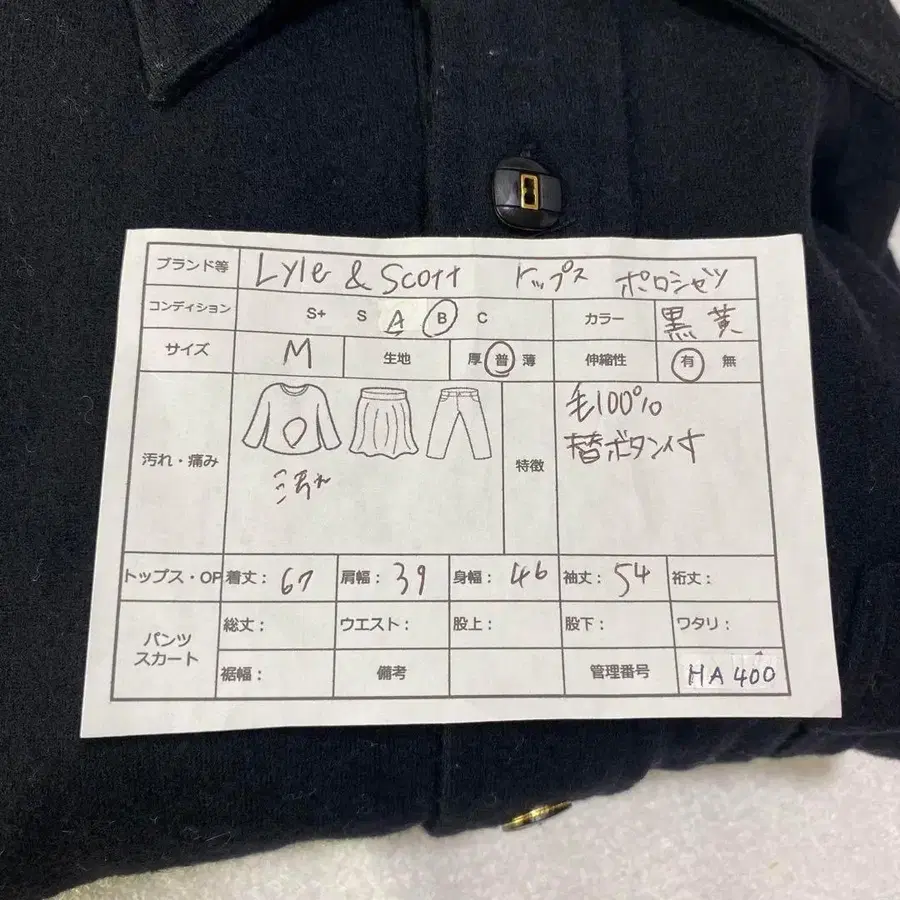 ブランド等 Lyle & Scott トップス ポロシャツ
コンディション S+ S A B C カラー 黒 黄
サイズ M 生地 厚 普 薄 伸縮性 有 無
汚れ・痛み 汚れ 特徴 毛100%
替ボタン付
トップス・OP 着丈: 67 肩幅: 39 身幅: 46 袖丈: 54 裄丈:
パンツ スカート 総丈: ウエスト: 股上: 股下: ワタリ:
裾幅: 備考 管理番号 HA 400